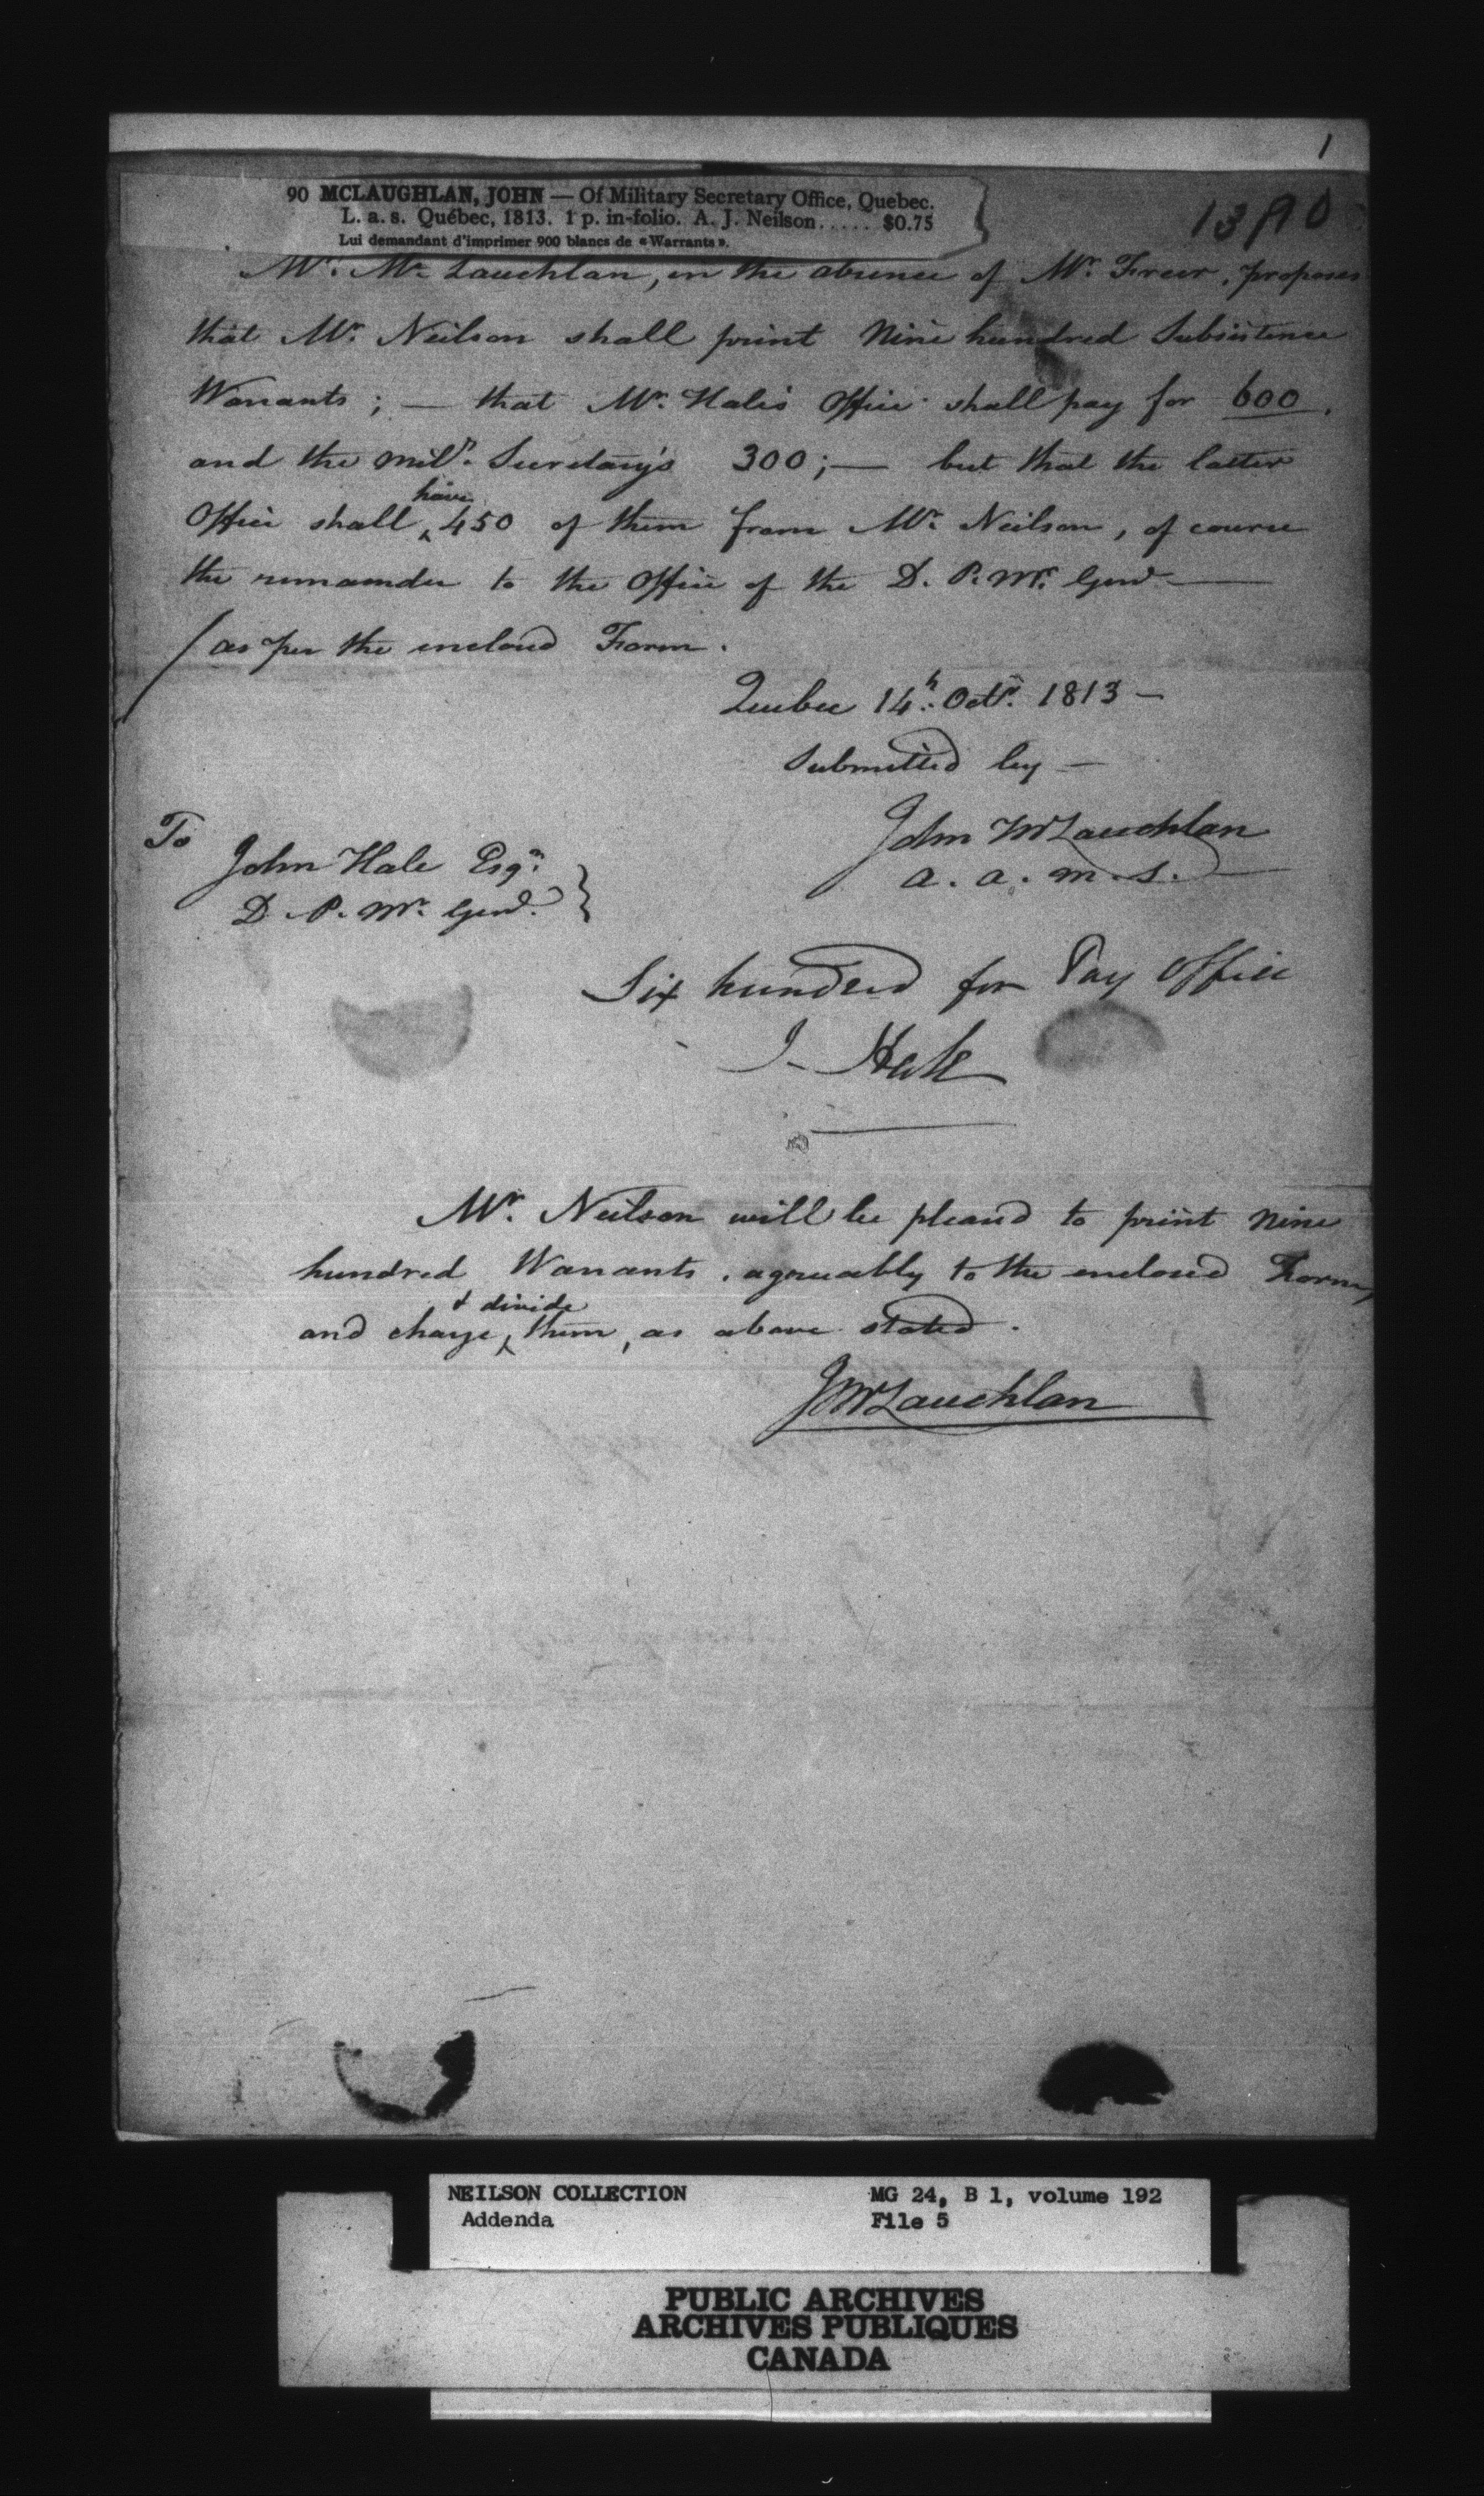 1
90 MCLAUGHLAN, JOHN — Of Military Secretary Office, Quebec.
L. a. s. Québec, 1813. 1 p. in-folio. A. J. Neilson..... $0.75
Lui demandant d'imprimer 900 blancs de «Warrants».
Mr. Mc Lauchlan, in the absence of Mr. Freer, proposes
that Mr. Neilson shall print Nine hundred Subsistence
Warrants; — that Mr. Hale's Office shall pay for 600,
and the Mily. Secretary's 300; — but that the latter
have
Office shall ‸ 450 of them from Mr. Neilson, of course
the remainder to the Office of the D. P. Mr. Genl. —
/ as per the enclosed Form.
Quebec 14th. Octr. 1813 —
Submitted by —
John McLauchlan
a. a. m. s.
To
John Hale Esqr.
D. P. Mr. Genl. }
Six hundred for Pay Office
J. Hale
Mr. Neilson will be pleased to print Nine
hundred Warrants, agreeably to the enclosed Form,
& divide
and charge ‸ them, as above stated.
J McLauchlan
NEILSON COLLECTION
Addenda
MG 24, B 1, volume 192
File 5
PUBLIC ARCHIVES
ARCHIVES PUBLIQUES
CANADA